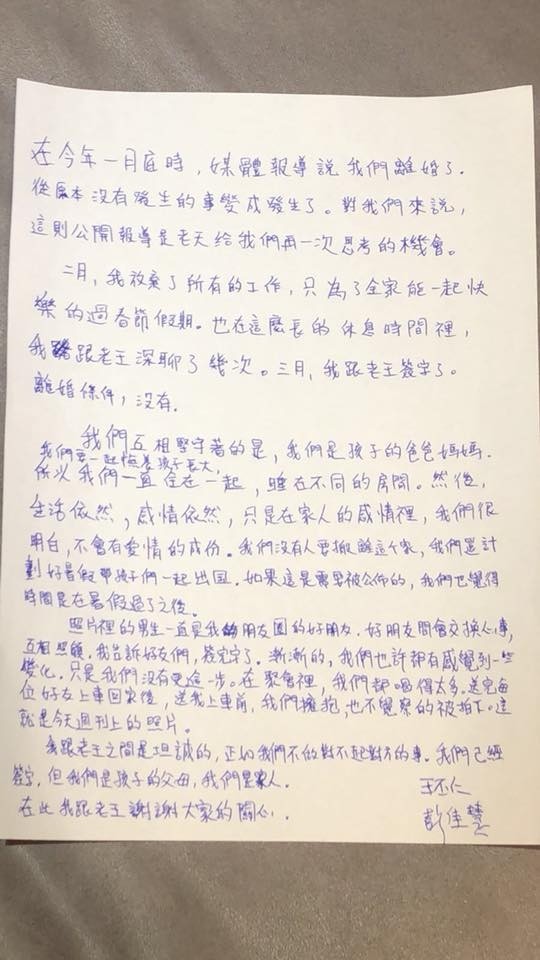 在今年一月底時，媒體報導說我們離婚了。
從原本沒有發生的事變成發生了。對我們來說，
這則公開報導是老天給我們再一次思考的機會。
二月，我放棄了所有的工作，只為了全家能一起快
樂的過春節假期。也在這麼長的休息時間裡，
我跟老王深聊了幾次。三月，我跟老王簽字了。
離婚條件，沒有.
我們互相堅守著的是，我們是孩子的爸爸媽媽.
我們要一起陪著孩子長大，
所以我們一直住在一起，睡在不同的房間。然後，
生活依然，感情依然，只是在家人的感情裡，我們很
明白，不會有愛情的成份。我們沒有人要搬離這個家，我們還計
劃好暑假帶孩子們一起出国。如果這是需要被公佈的，我們也覺得
時間是在暑假過了之後。
照片裡的男生一直是我的朋友圈的好朋友。好朋友間會交換心事，
互相照顧。我告訴好友們，簽完字了。漸漸的，我們也許都有感覺到一些
變化。只是我們沒有更進一步。在聚會裡，我們都喝得太多。送完每
位好友上車回家後，送我上車前，我們擁抱，也不覺察的被拍下。這
就是今天週刊上的照片。
我跟老王之間是坦誠的，正如我們不做對不起對方的事。我們已經
簽字，但我們是孩子的父母，我們是家人.
王丕仁
在此我跟老王謝謝大家的關心.
彭佳慧